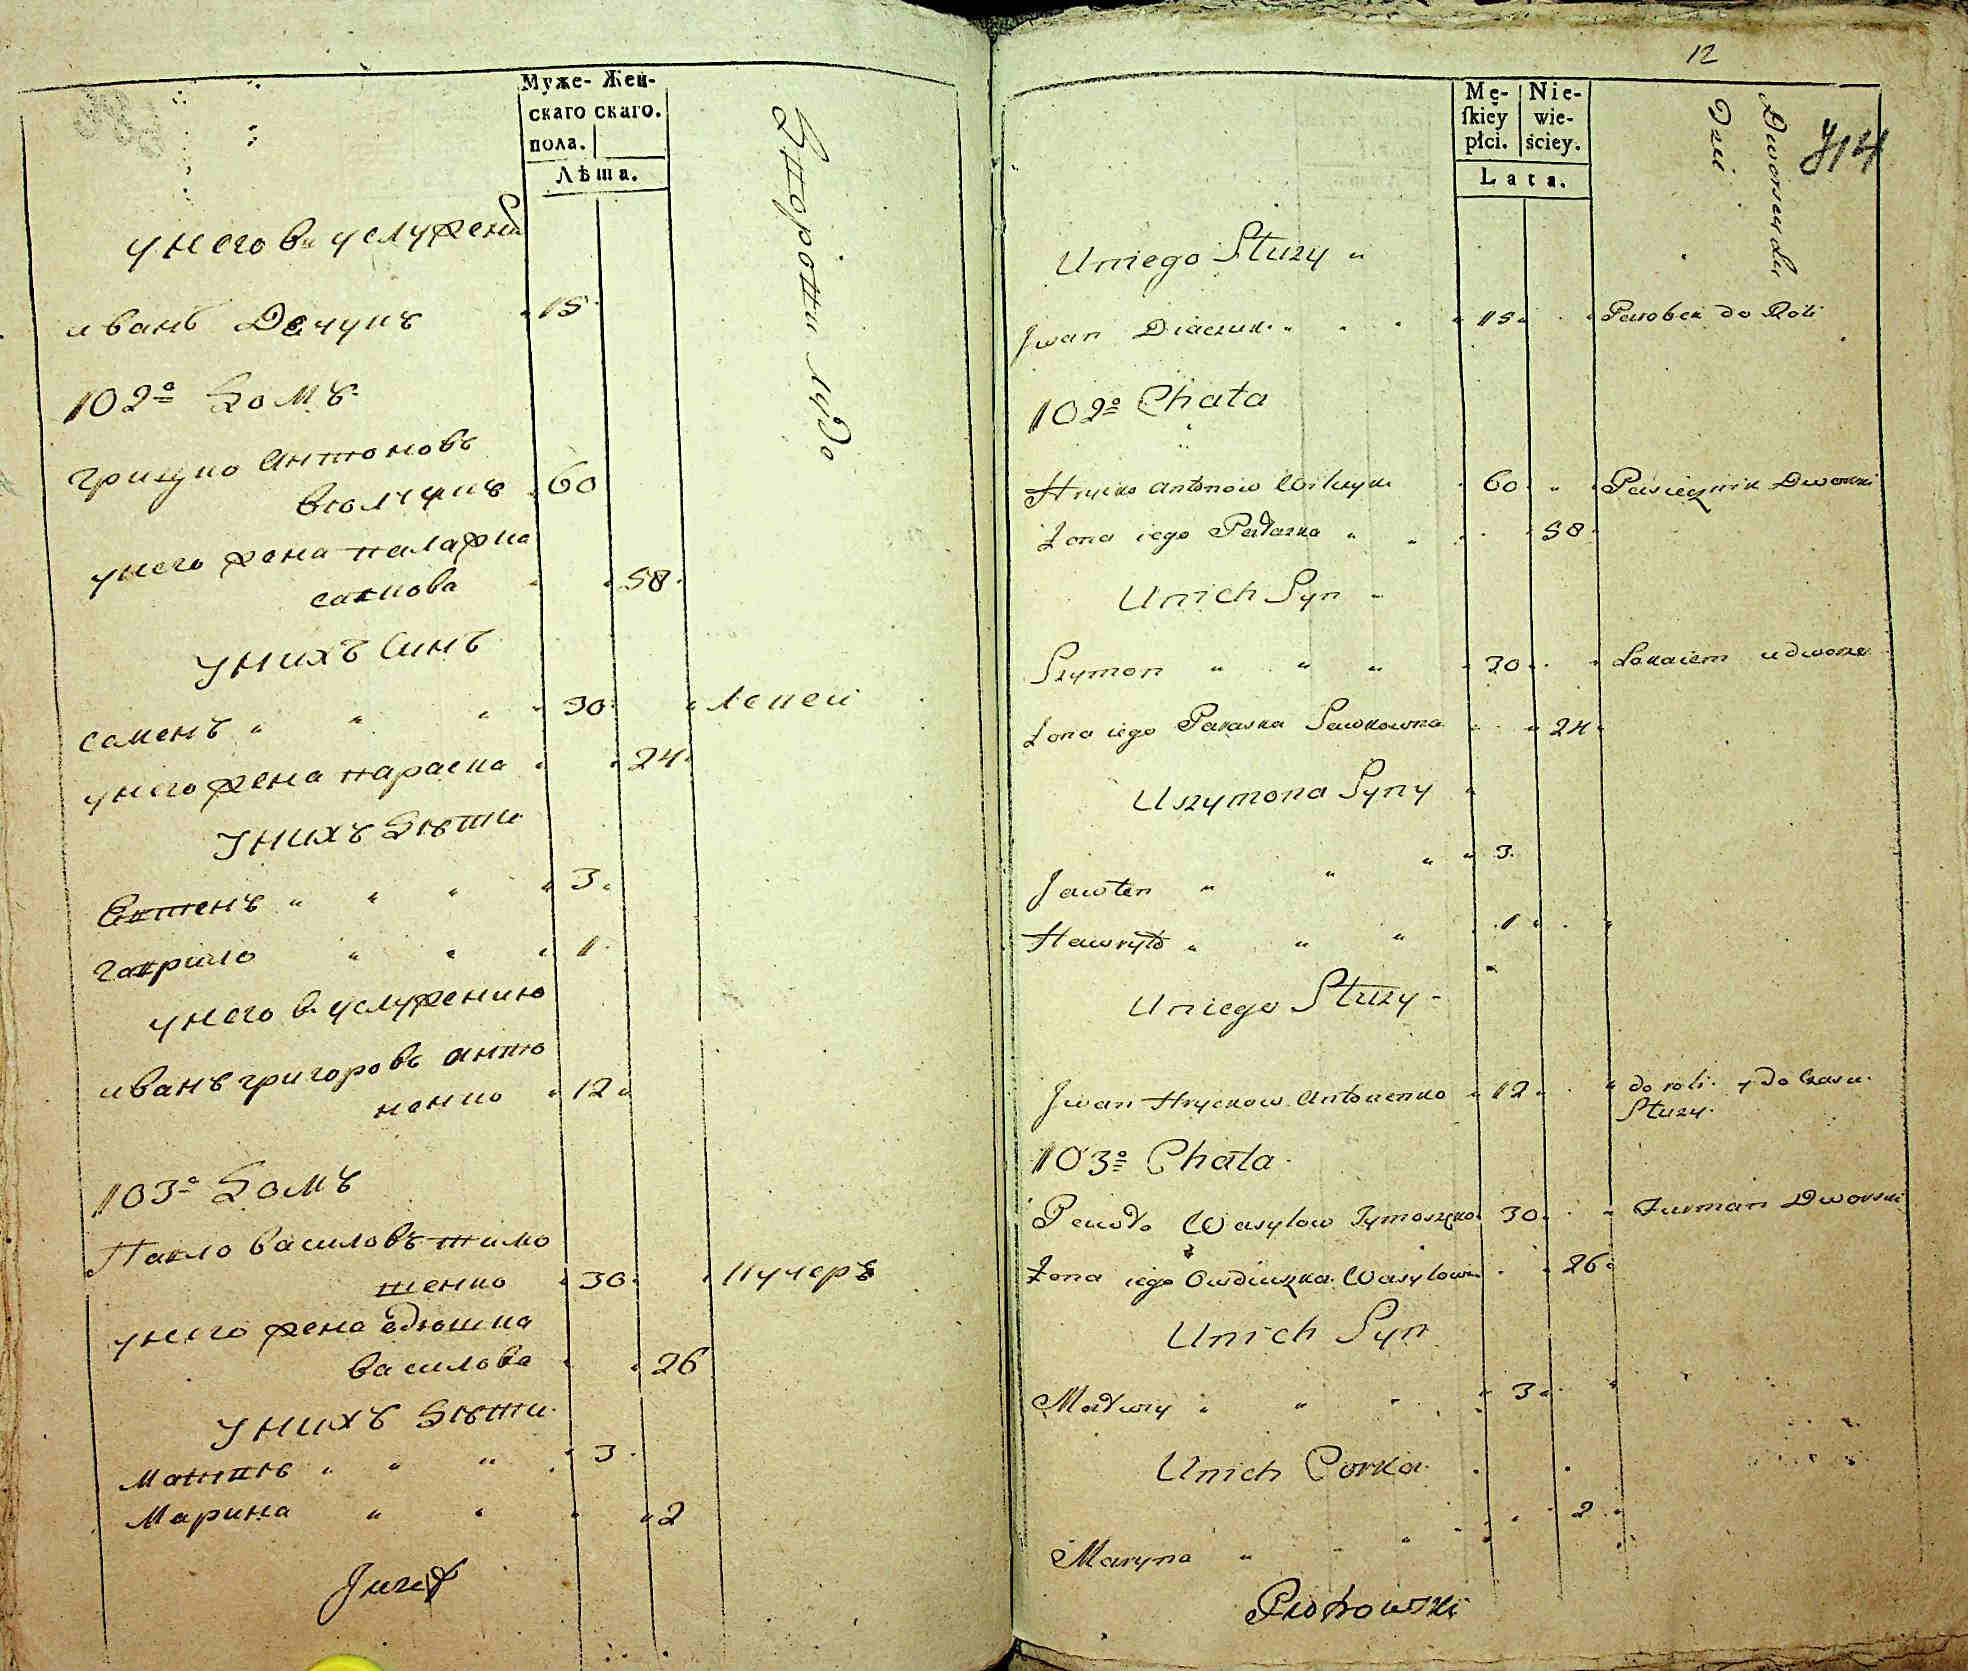 Муже- Жен-
скаго скаго.
пола.
Лѣта.
Дворови люде
у него в услужени
иванъ Дечукъ 15
102º Домъ
грицко антоновъ
вюлчикъ 60
у него жена палажка
сакнова 58
У нихъ Синъ
Семенъ " " " 30 Лекей
у него жена параска 24
У нихъ Дѣти
Евтенъ " " " 3
гаврило " " 1
у него в услужению
иванъ григоровъ анто
ненко 12
103º Домъ
Павло василовъ тимо
шенко 30 Кучеръ
у него жена Вдюшка
василова 26
У нихъ Дѣти
Матвѣй " " " 3
Марина " " 2
Juzef
12
714
Mę- Nie-
ſkiey wie-
płci. ściey.
Lata.
Dworscy Lu
Dzi
U niego Służy "
Jwan Diaczuk " " " 15 Parobek do Roli
102º Chata
Hrycko Antonow Wilczyk 60 Pasiecznik Dworski
Żona iego Pałazka " " 58
U nich Syn "
Szymon " " " 30 Lokaiem u dworze
Żona iego Paraska Sawkowna 24
U Szymona Syny "
Jawten " " " 3
Hawryło " " " 1
U niego Służy -
Jwan Hryckow Antonenko 12 do roli y do Czasu
Służy.
103º Chata
Pawło Wasylow Tymoszenko 30 Furman Dworski
Żona iego Owdiuszka Wasylowa 26
U nich Syn
Matwiy " " " 3
U nich Corka
Maryna " " " 2
Piotrowski